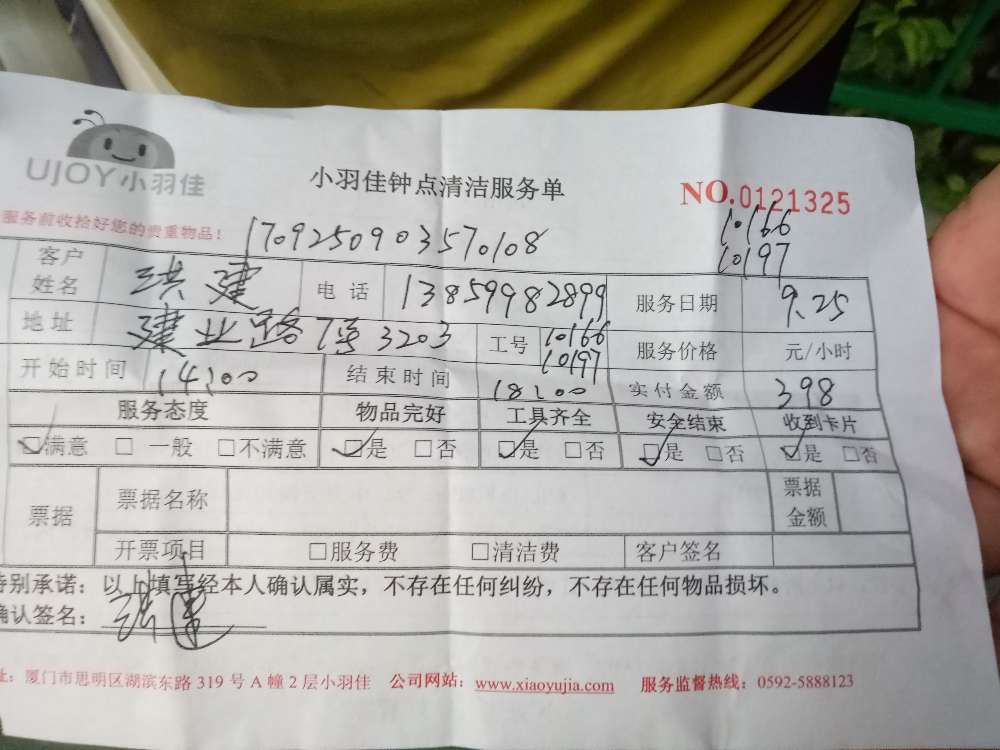 UJOY小羽佳
小羽佳钟点清洁服务单
NO.0121325
服务前收拾好您的贵重物品！
1709250903570108
10166
10197
客户姓名 洪建 电话 13859982899 服务日期 9.25
地址 建业路7号3203 工号 10166 10197 服务价格 元/小时
开始时间 14:00 结束时间 18:00 实付金额 398
服务态度 物品完好 工具齐全 安全结束 收到卡片
☑满意 □一般 □不满意 ☑是 □否 ☑是 □否 ☑是 □否 ☑是 □否
票据 票据名称 票据金额
开票项目 □服务费 □清洁费 客户签名
特别承诺：以上填写经本人确认属实，不存在任何纠纷，不存在任何物品损坏。
确认签名：洪建
址：厦门市思明区湖滨东路319号A幢2层小羽佳 公司网站：www.xiaoyujia.com 服务监督热线：0592-5888123